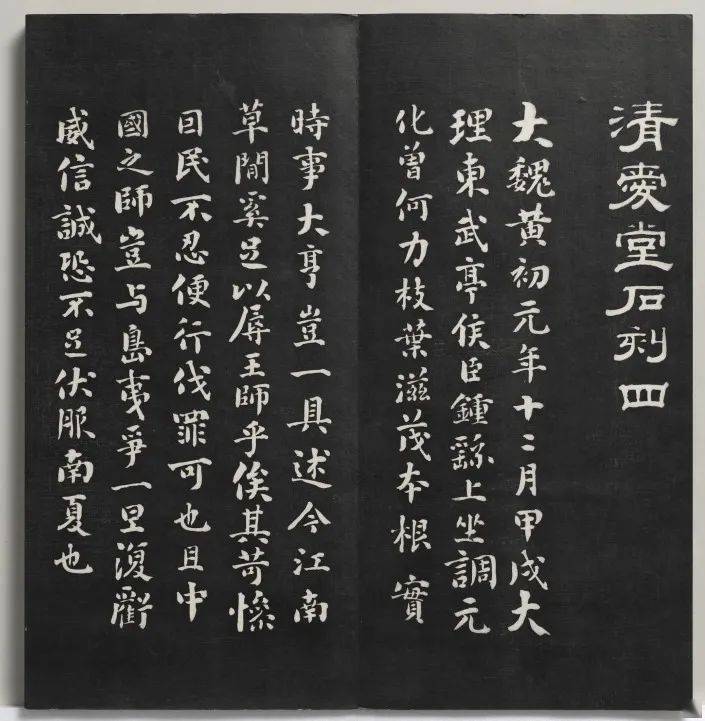 清愛堂石刻四
大魏黃初元年十二月甲戌大
理東武亭侯臣鍾繇上坐調元
化曾何力枝葉滋茂本根實
時事大亨豈一具述今江南
草間奚足以辱王師乎俟其苛慘
目民不忍便行伐罪可也且中
國之師豈与島夷爭一旦復虧
威信誠恐不足伏服南夏也